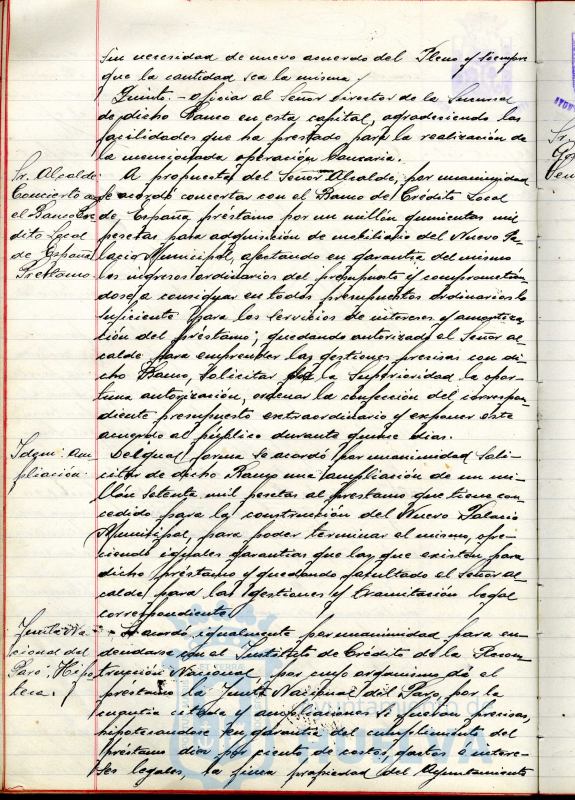 sin necesidad de nuevo acuerdo del Pleno y siempre
que la cantidad sea la misma.
Quinto.- Oficiar al Señor Director de la Sucursal
de dicho Banco en esta capital, agradeciendo las
facilidades que ha prestado para la realización de
la mencionada operación bancaria.
Sr. Alcalde
Concierto
el Banco Cre
dito Local
de España
Prestamo.
A propuesta del Señor Alcalde, por unanimidad
se acordó concertar con el Banco de Crédito Local
de España, préstamo por un millón quinientas mil
pesetas para adquisición de mobiliario del Nuevo Pa-
lacio Municipal, afectando en garantía del mismo
los ingresos ordinarios del presupuesto y comprometién-
dose a consignar en todos presupuestos ordinarios lo
suficiente para los servicios de intereses y amortiza-
ción del préstamo; quedando autorizado el Señor al-
calde para emprender las gestiones precisas con di-
cho Banco, solicitar de la Superioridad la opor-
tuna autorización, ordenar la confección del correspon-
diente presupuesto extraordinario y exponer este
acuerdo al público durante quince días.
Idem. Am
pliación.
De igual forma se acordó por unanimidad soli-
citar de dicho Banco una ampliación de un mi-
llón setenta mil pesetas al préstamo que tiene con-
cedido para la construcción del Nuevo Palacio
Municipal, para poder terminar el mismo, ofre-
ciendo iguales garantías que las que existen para
dicho préstamo y quedando facultado el Señor al-
calde para las gestiones y tramitación legal
correspondiente.
Junta Na
cional del
Paro. Hipo
teca.
Se acordó igualmente por unanimidad para en-
deudarse con el Instituto de Crédito de la Recons-
trucción Nacional, por cuyo organismo dé el
prestamo la Junta Nacional del Paro, por la
cuantía citada y ampliaciones si fueran precisas,
hipotecandose en garantía del cumplimiento del
préstamo diez por ciento de costas, gastos e intere-
ses legales, la finca propiedad del Ayuntamiento
Ayuntamiento de
HUELVA